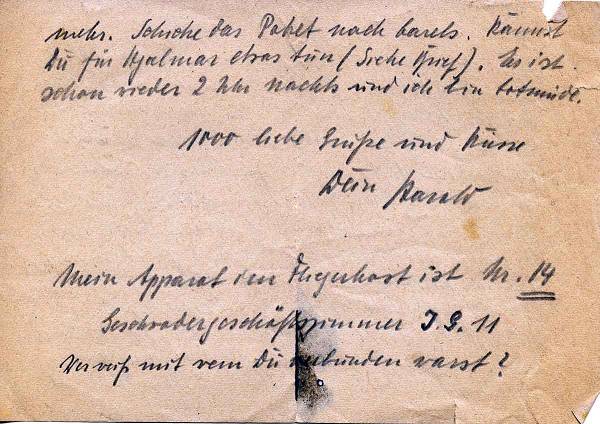 mehr. Schicke das Paket nach Carels. Kannst
Du für Hjalmar etwas tun (Siehe Brief). Es ist
schon wieder 2 Uhr nachts und ich bin totmüde.
1000 liebe Grüße und Küsse
Dein Harald
Mein Apparat im Fliegerhorst ist Nr. 14
Geschwadergeschäftszimmer J.G. 11
Wer weiß mit wem Du verbunden warst?